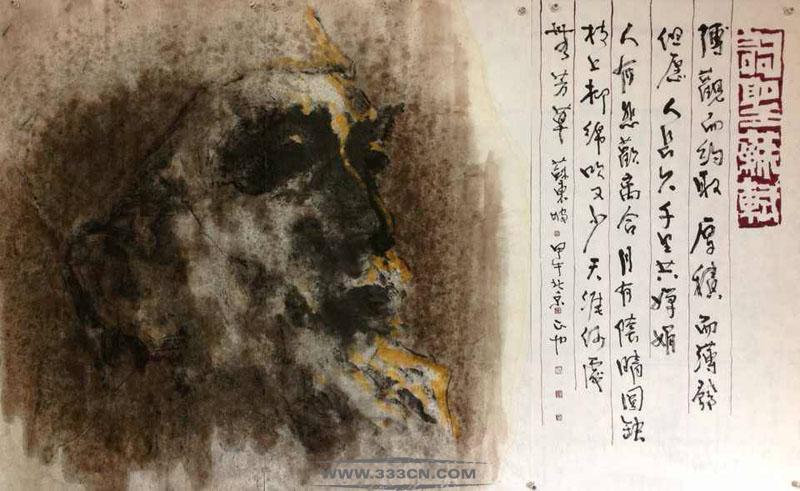 詞聖蘇軾
博觀而約取 厚積而薄發
但愿人长久千里共嬋娟
人有悲歡离合月有陰晴圆缺
枝上柳綿吹又少天涯何處
無芳草 蘇東坡 甲午北京
WWW.333CN.COM